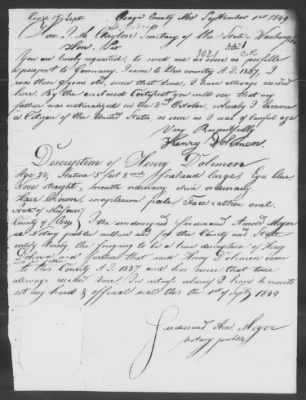 Osage County Mo September 1st 1849
Secretary of the State Washington
Hon. Sir
You are kindly requested, to send me as soon as possible
a passport to Germany. I came to this country A.D. 1837, I
was then years old, since that time, I have always resided
here. By the enclosed Certificate you will see that my
father was naturalized in the October, whereby I became
a Citizen of the United States, as soon as I was of lawful age
Very Respectfully
Henry
Description of Henry
Age 23, Stature 5 feet inch forehead large, Eyes blue
Nose straight, mouth ordinary chin ordinary
Hair brown, complexion pale, Face rather oval
State of Missouri
County of Osage } The undersigned Ferdinand
a Notary public within and for the County and State
certify hereby the foregoing to be a true description of Henry
and further that said Henry came
to this Country A.D. 1837 and has since that time
always resided here. In witness whereof I have hereunto
set my hand & official seal this the 1st of Sept 1849
Ferdinand
notary public